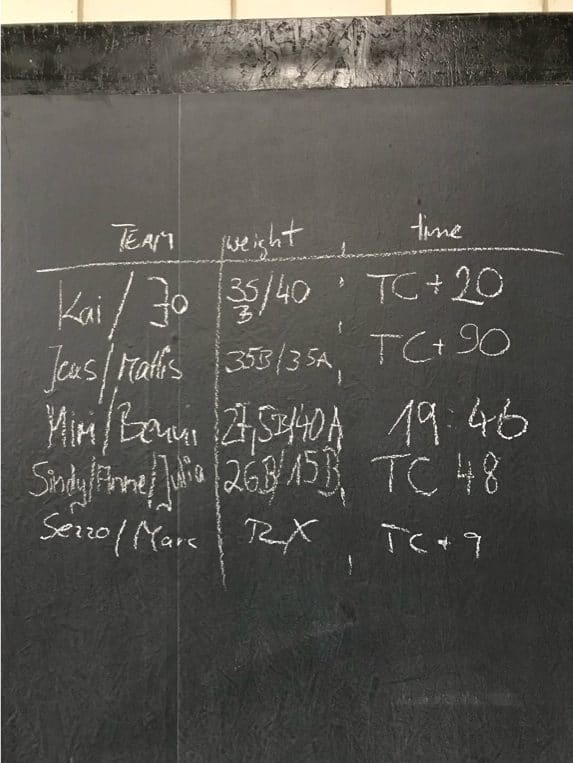 TEAM weight time
Kai / Jo 35/40 TC + 20
B
Jens / Mattis 35B/35A TC + 90
Miri / Benni 27,5B/40A 19:46
Sindy / Anne / Julia 26B/15B TC 48
Sezzo / Marc RX TC + 9